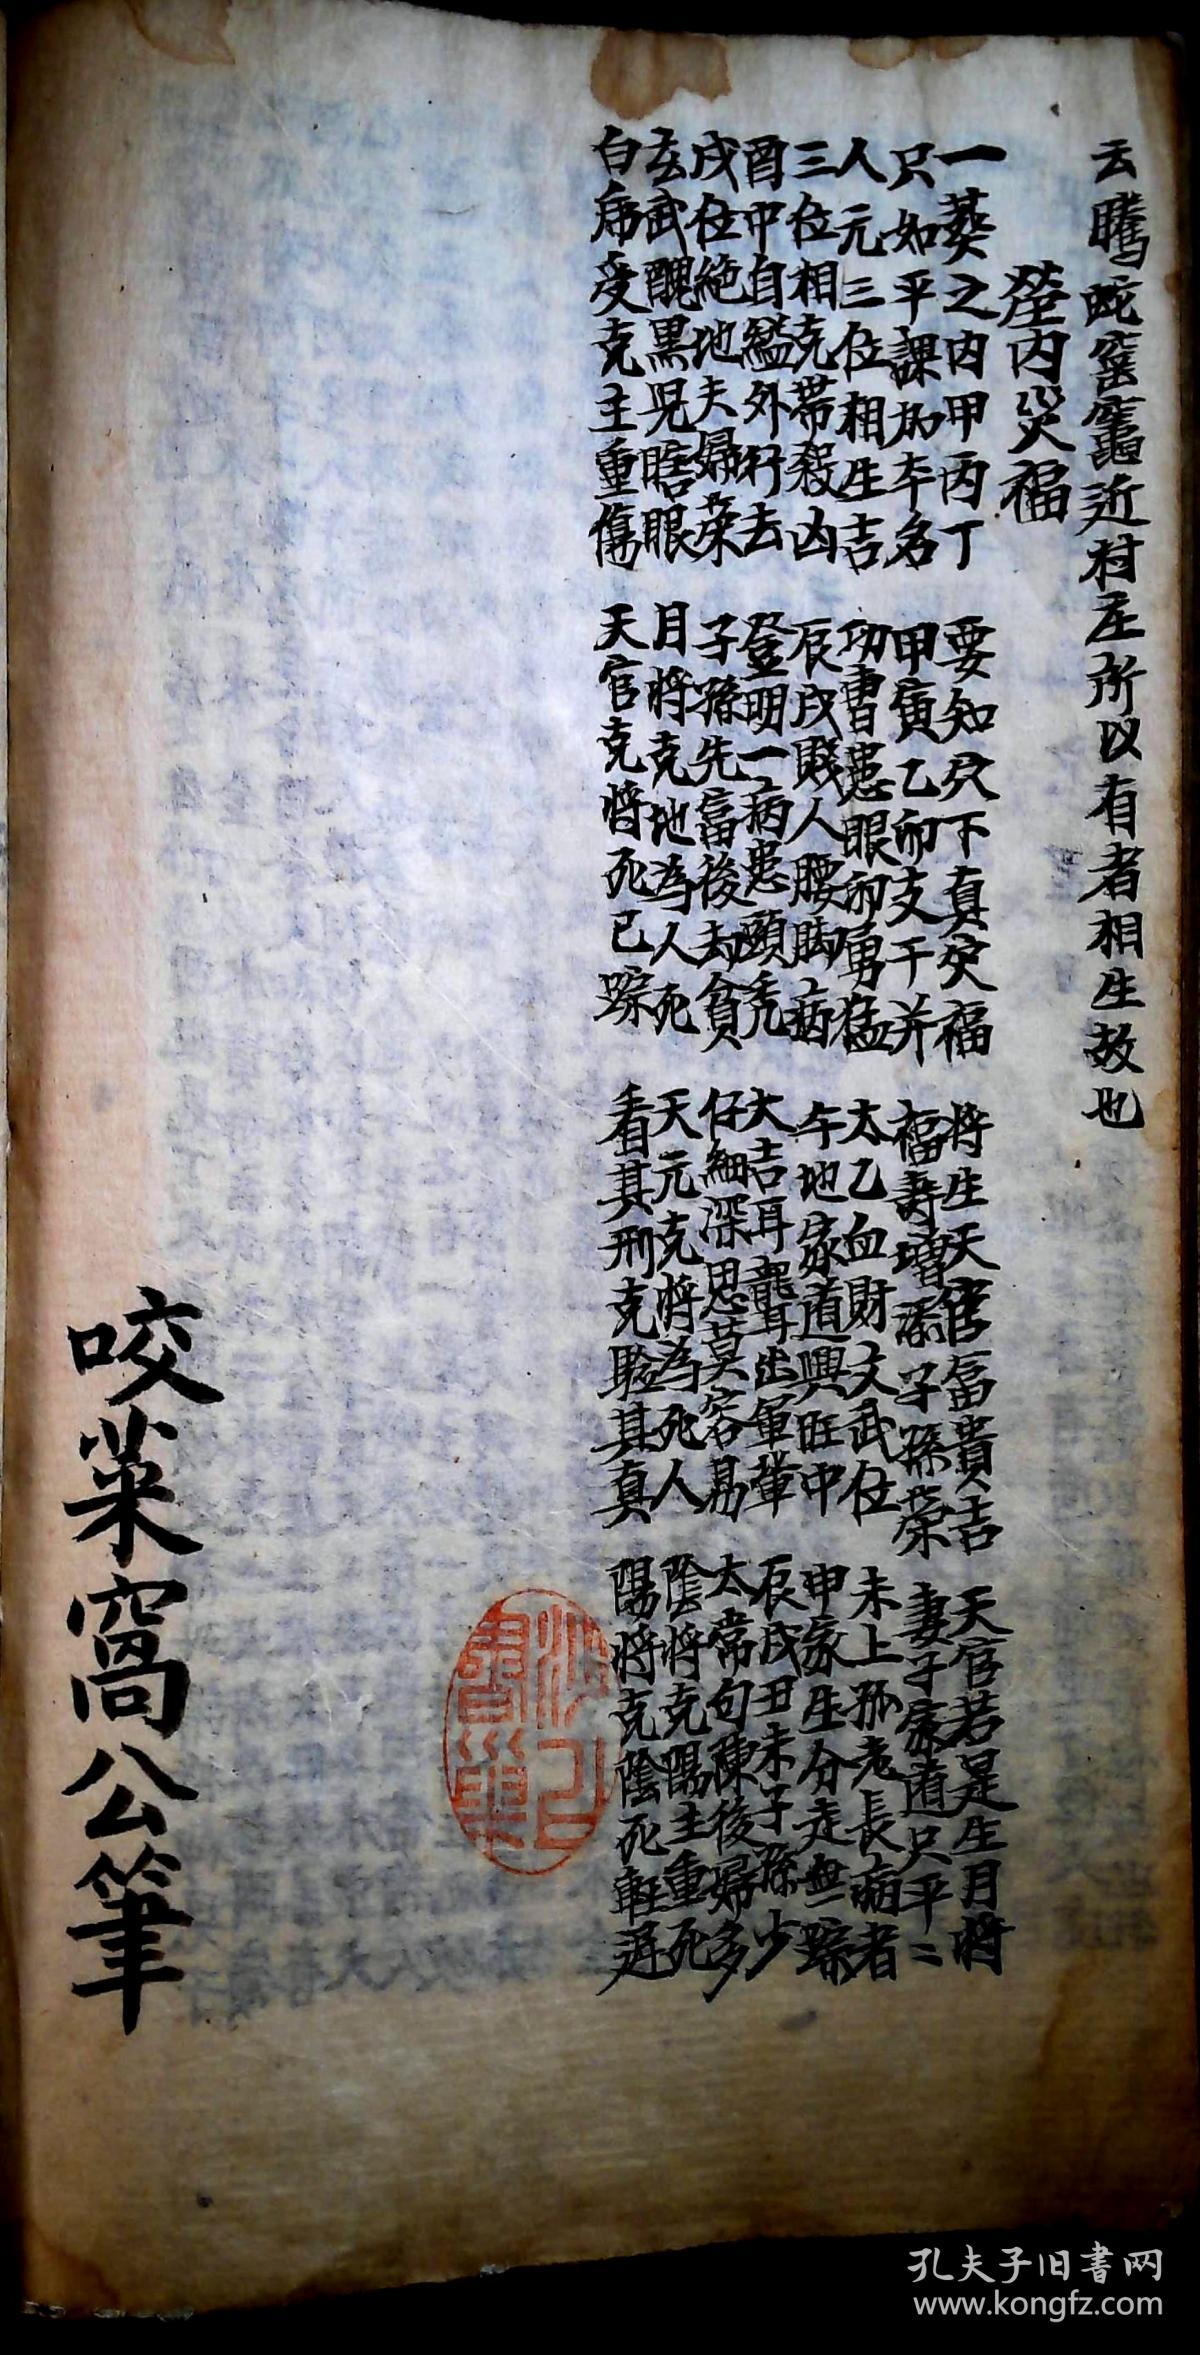 云騰蛇窰竈近村庄所以有者相生故也
塋内災福
一葬之内甲丙丁 要知穴下真灾福 将生天官富貴吉 天官若是生月将
只如平課為本名 甲寅乙卯支干并 福壽增添子孫荣 妻子家道只平二
人元三位相生吉 功曹患眼卯勇猛 太乙血財文武位 未上孤老長病者
三位相克帯殺凶 辰戌賤人腰脚病 午地家道興旺中 申家生分走無踪
酉中自縊外行去 登明一病患頭秃 大吉耳聾出軍輩 辰戌丑未子孫少
戌位絶地夫婦荣 子孫先富後去貧 仔細深思莫容易 太常句陳後婦多
玄武醜黒見瞎眼 月将克地為人死 天元克将為死人 陰将克陽主重死
白虎受克主重傷 天官克将死已踪 看其刑克驗其真 陽将克陰死軽遅
咬菜窩公筆
孔夫子旧書网
www.kongfz.com